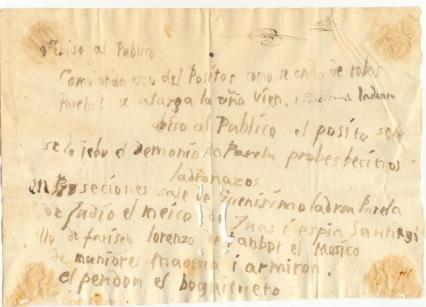 Abiso al Publico
Como anda eso del Posito? como se anda de robos
Parela! se alarga la uña vien. ladron
Abiso al Publico el posito se le
se lo lebo el demonio Parela probes becinos
ladronazos
en Proseciones sale ve ladron Parela
de Judio el meico de Juas i espia Santiagi
llo de fariseo lorenzo de tanbor el Musico
de muniores maqua i armiron.
el pendon el